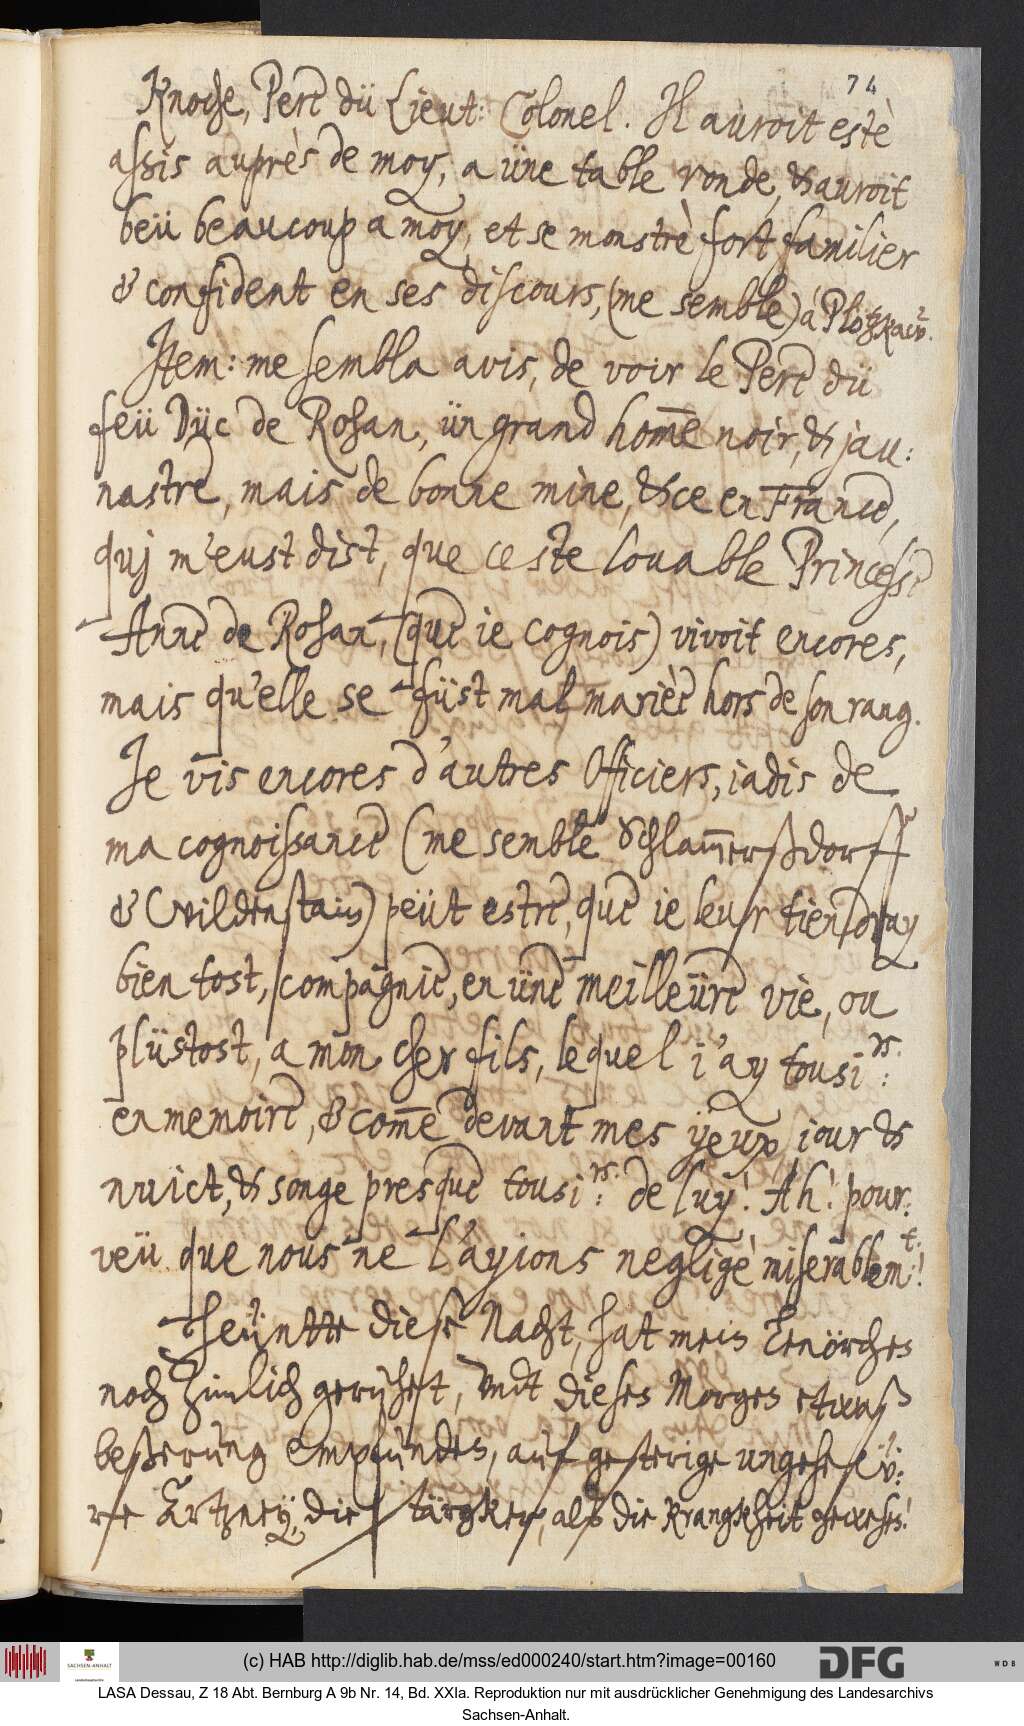 74
Knoche, Pere dü Lieut: Colonel. Il auroit estè
assis auprès de moy, a üne table ronde, & auroit
beü beaucoup a moy, et se monstrè fort familier
& confident en ses discours, (me semble) á Plötzkaw.
Item: me sembla avis, de voir le Pere dü
feü Düc de Rohan, ün grand hom̄e noir, & jau:
nastre, mais de bonne mine, & ce en France,
quj m'eust dist, que ceste louable Princesse
Anne de Rohan, (que ie cognois) vivoit encores,
mais qu'elle se füst mal mariée hors de son rang.
Je vis encores d'autres Officiers, iadis de
ma cognoissance (me semble Schlam̄erßdorff
& Wildenstain) peüt estre, que ie leur tiendray
bien tost, compagnie, en üne meilleüre vie, ou
plüstost, a mon cher fils, lequel i'ay tousi:rs.
en memoire, & com̄e devant mes yeux, jour &
nuict, & songe presque tousi:rs. de luy! Ah! pour:
veü que nous ne l'ayions negligè miserablem:t.!
Heüntte diese Nacht, hat mein Ernörchen
noch zimlich geruhet, vndt dieses Morgens etwaß
beßerung empfunden, auf gesterige ungeheü:
re Artzney, die stärgker, alß die Krangkheit gewesen!
(c) HAB http://diglib.hab.de/mss/ed000240/start.htm?image=00160
SACHSEN-ANHALT
DFG
WDB
LASA Dessau, Z 18 Abt. Bernburg A 9b Nr. 14, Bd. XXIa. Reproduktion nur mit ausdrücklicher Genehmigung des Landesarchivs
Sachsen-Anhalt.